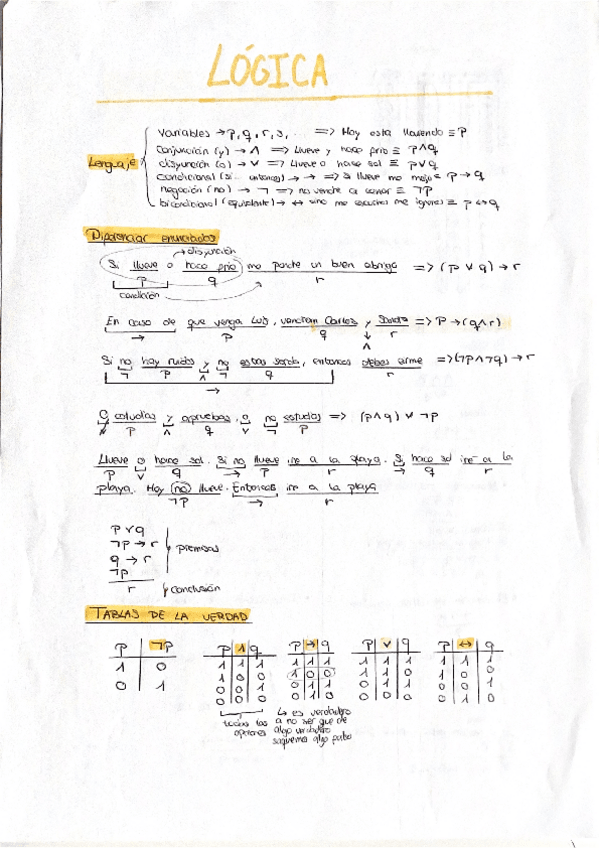 LÓGICA
Lenguaje
Variables → p, q, r, s, ... => Hoy esta lloviendo ≡ p
Conjunción (y) → ∧ => Llueve y hace frio ≡ p∧q
disyunción (o) → ∨ => Llueve o hace sol ≡ p∨q
condicional (si... entonces) → → => Si llueve me mojo ≡ p → q
negación (no) → ¬ => no vendré a cenar ≡ ¬p
bicondicional (equivalente) → ↔ sino me escuchas me ignoras ≡ p ↔ q
Diferenciar enunciados
→ disyunción
Si llueve o hace frio me pondre un buen abrigo => (p ∨ q) → r
p q r
condición
En caso de que venga Luis, vendran Carlos y Sandra => p → (q∧r)
→ p q ∧ r
Si no hay ruidos y no estas sorda, entonces debes oirme => (¬p∧¬q) → r
¬ p ∧ ¬ q r
→
O estudias y apruebas, o no estudias => (p∧q) ∨ ¬p
p ∧ q ∨ ¬ p
Llueve o hace sol. Si no llueve ire a la playa. Si hace sol iré a la
p ∨ q → ¬ p r → q r
playa. Hoy no llueve. Entonces ire a la playa
¬p → r
p ∨ q
¬p → r
q → r
premisas
¬p
r
conclusión
TABLAS DE LA VERDAD
p ¬p p ∧ q p → q p ∨ q p ↔ q
1 0 1 1 1 1 1 1 1 1 1 1 1 1
0 1 1 0 0 1 0 0 1 1 0 1 0 0
0 0 1 0 1 1 0 1 1 0 0 1
0 0 0 0 1 0 0 0 0 0 1 0
todas las opciones
↳ es verdadero
a no ser que de
algo verdadero
saquemos algo falso